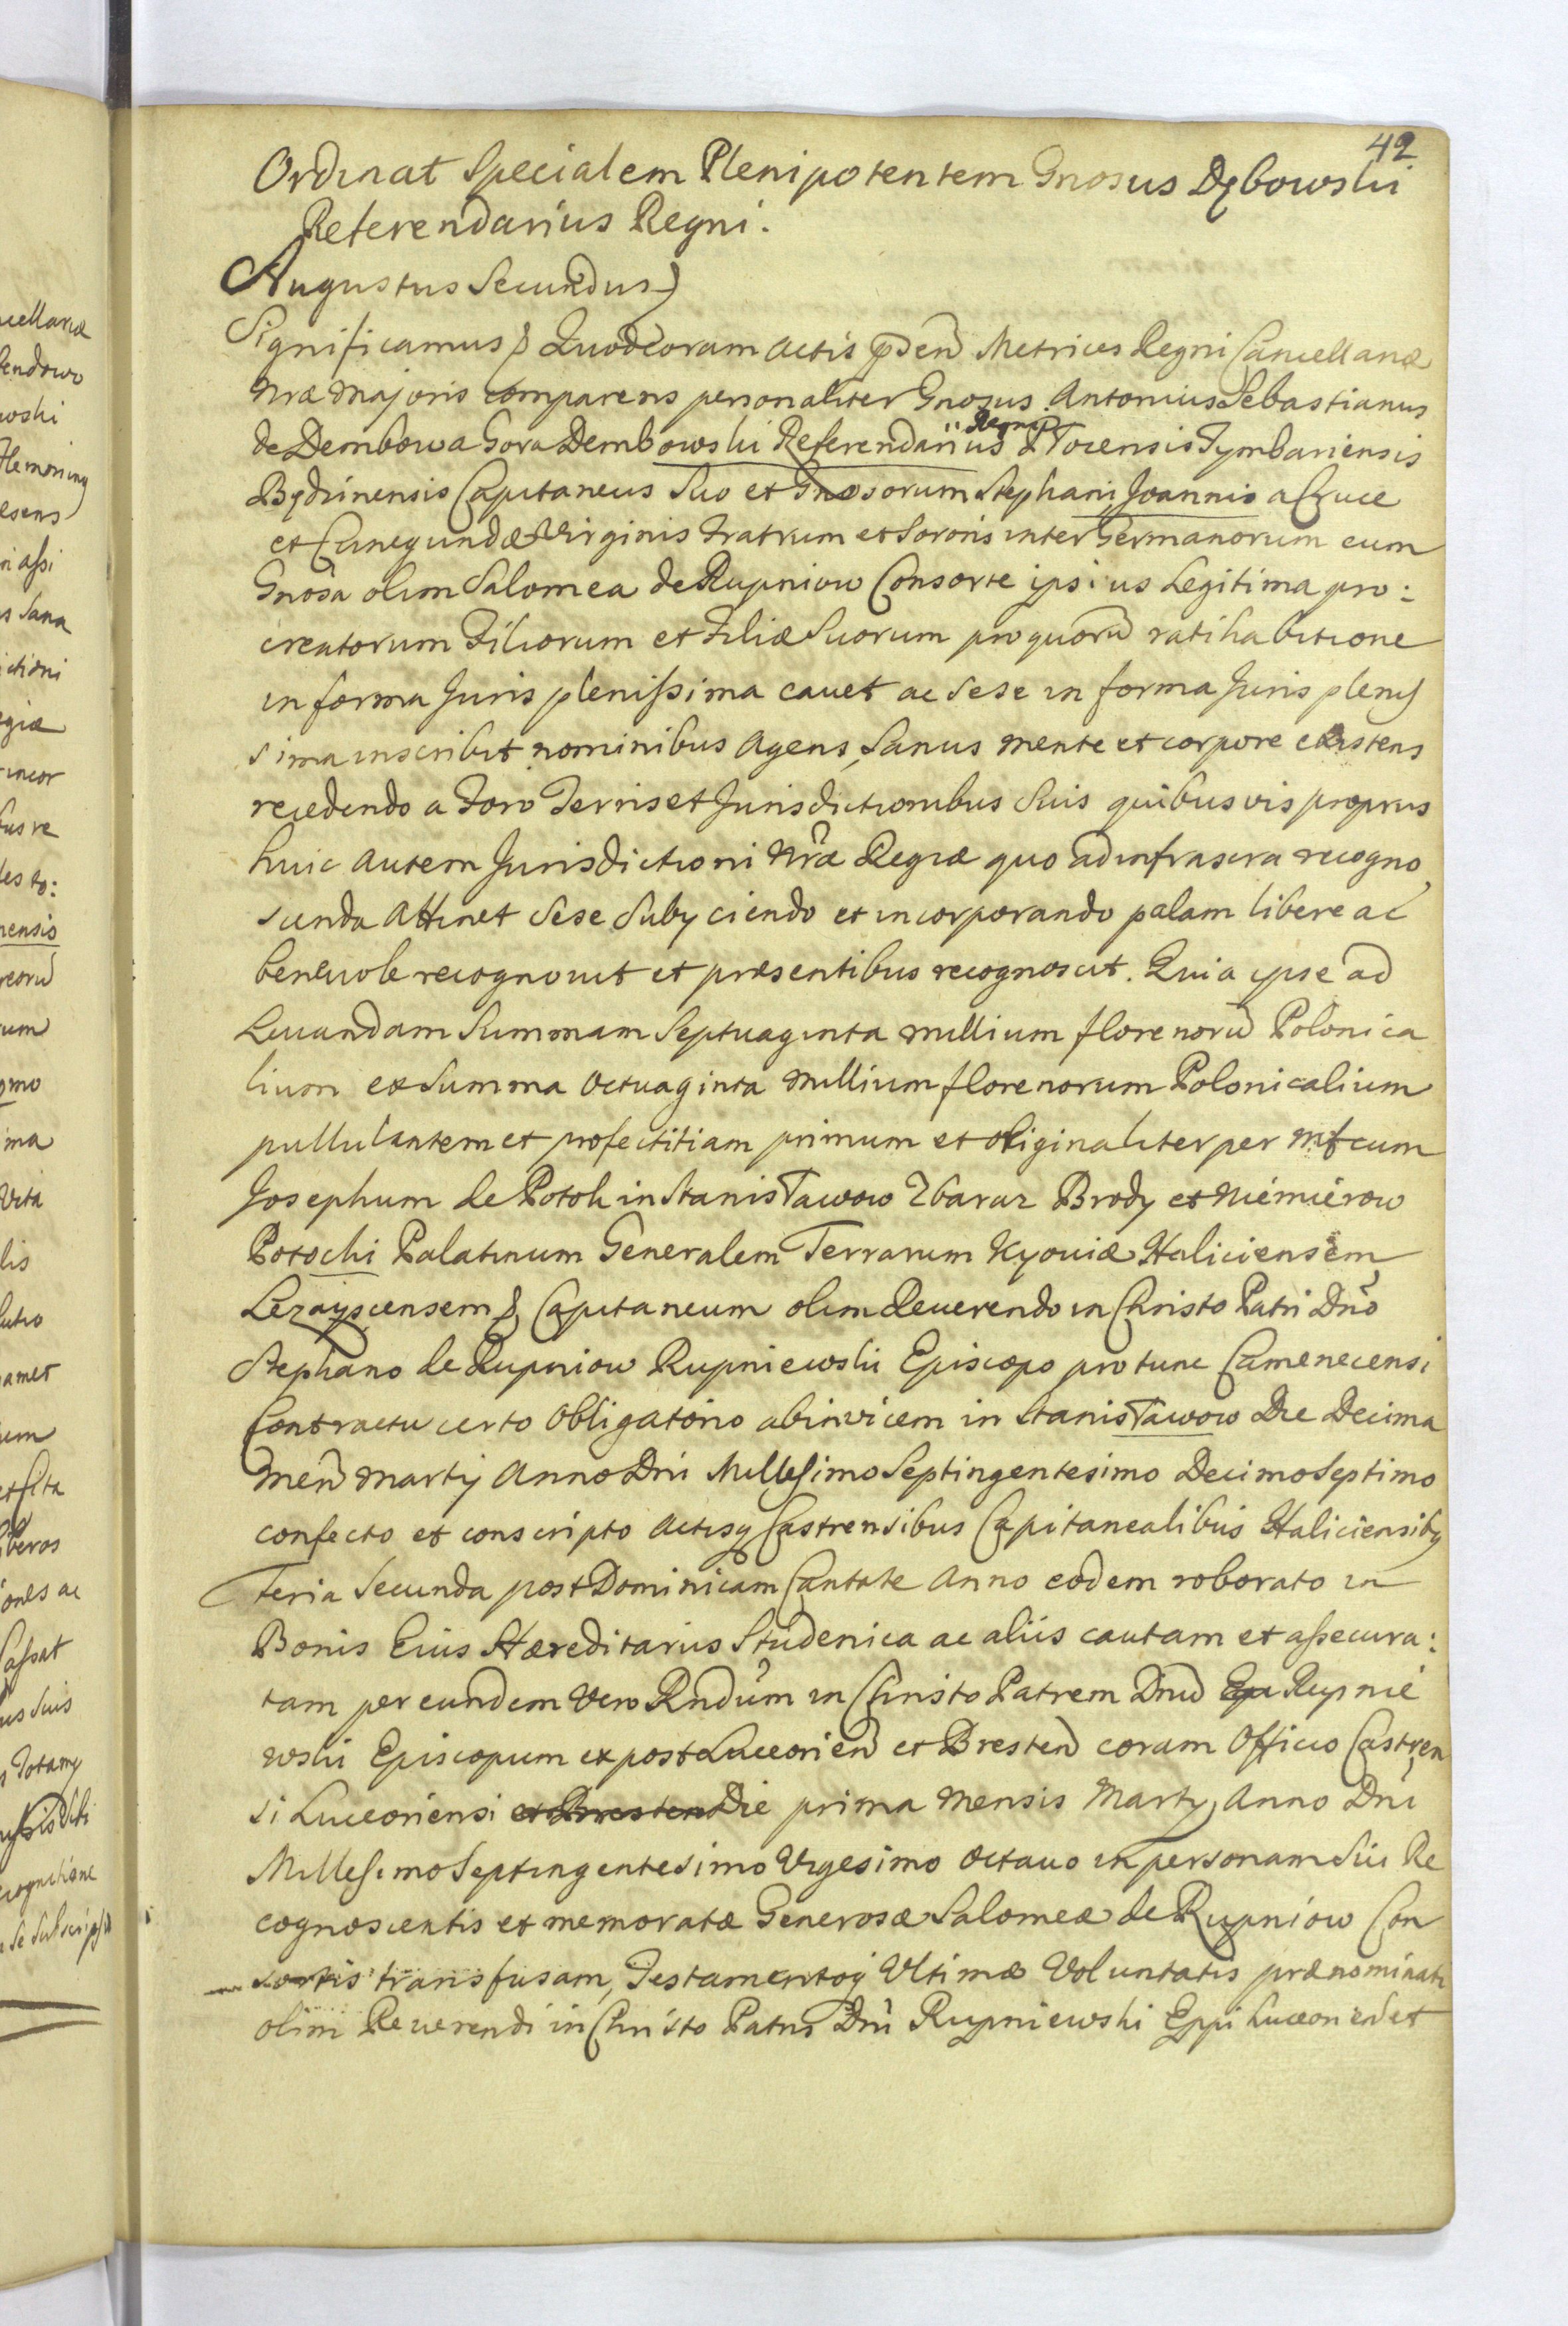 42
Ordinat Specialem Plenipotentem Gnosus Dębowski
Referendarius Regni.
Augustus Secundus
Significamus & Quod coram actis pñden Metrices Regni Cancellariæ
Nræ Majoris comparens personaliter Gnosus Antonius Sebastianus
de Dembowa Gora Dembowski Referendarius Regni & Tocensis Tymbariensis
Będzinensis Capitaneus Suo et Gnosorum Stephani, Joannis a Cruce
et Cunegundæ Virginis Fratrum et Sororis inter Germanorum cum
Gnosa olim Salomea de Rupniow Consorte ipsius Legitima pro:
creatorum Filiorum et Filiæ Suorum pro quorũ ratihabitione
in forma Juris plenissima cauet ac Sese in forma Juris plenis
sima inscribit nominibus Agens, Sanus mente et corpore existens
recedendo a Foro Terris et Jurisdictionibus Suis quibusvis proprijs
huic autem Jurisdictioni Nræ Regiæ quo ad infrascra recogno
scenda Attinet Sese Subyciendo et incorporando palam libere ac
beneuole recognouit et præsentibus recognoscit. Quia ipse ad
Leuandam Summam Septuaginta millium florenorũ Polonica
lium ex Summa Octuaginta Millium florenorum Polonicalium
pullulantem et profectitiam primum et originaliter per Mfcum
Josephum de Potok in Stanisławow Zbaraz Brody et Niemierow
Potocki Palatinum Generalem Terrarum Kyouiæ Haliciensem
Lezayscensem & Capitaneum olim Reuerendo in Christo Patri Dño
Stephano de Rupniow Rupniewski Episcopo pro tunc Camenecensi
Contractu certo Obligatorio abinvicem in Stanisławow Die Decima
Men Martij Anno Dni Millesimo Septingentesimo Decimo Septimo
confecto et conscripto Actisq Castrensibus Capitanealibus Haliciensibq
Feria Secunda post Dominicam Cantate Anno eodem roborato in
Bonis Eius Hæreditarijs Studenica ac aliis cautam et assecura:
tam per eundem Vero Rndũm in Christo Patrem Dnũ Rupnie
wski Episcopum expost Luceorien et Bresten coram Officio Castren
si Luceoriensi et Bresten Die prima Mensis Martij Anno Dni
Millesimo Septingentesimo Vigesimo Octauo in personam Sui Re
cognoscentis et memoratæ Generosæ Salomeæ de Rupniow Con
sortis transfusam, Testamentoq Ultimæ Voluntatis prænominati
olim Reuerendi in Christo Patris Dni Rupniewski Eppi Luceorien et